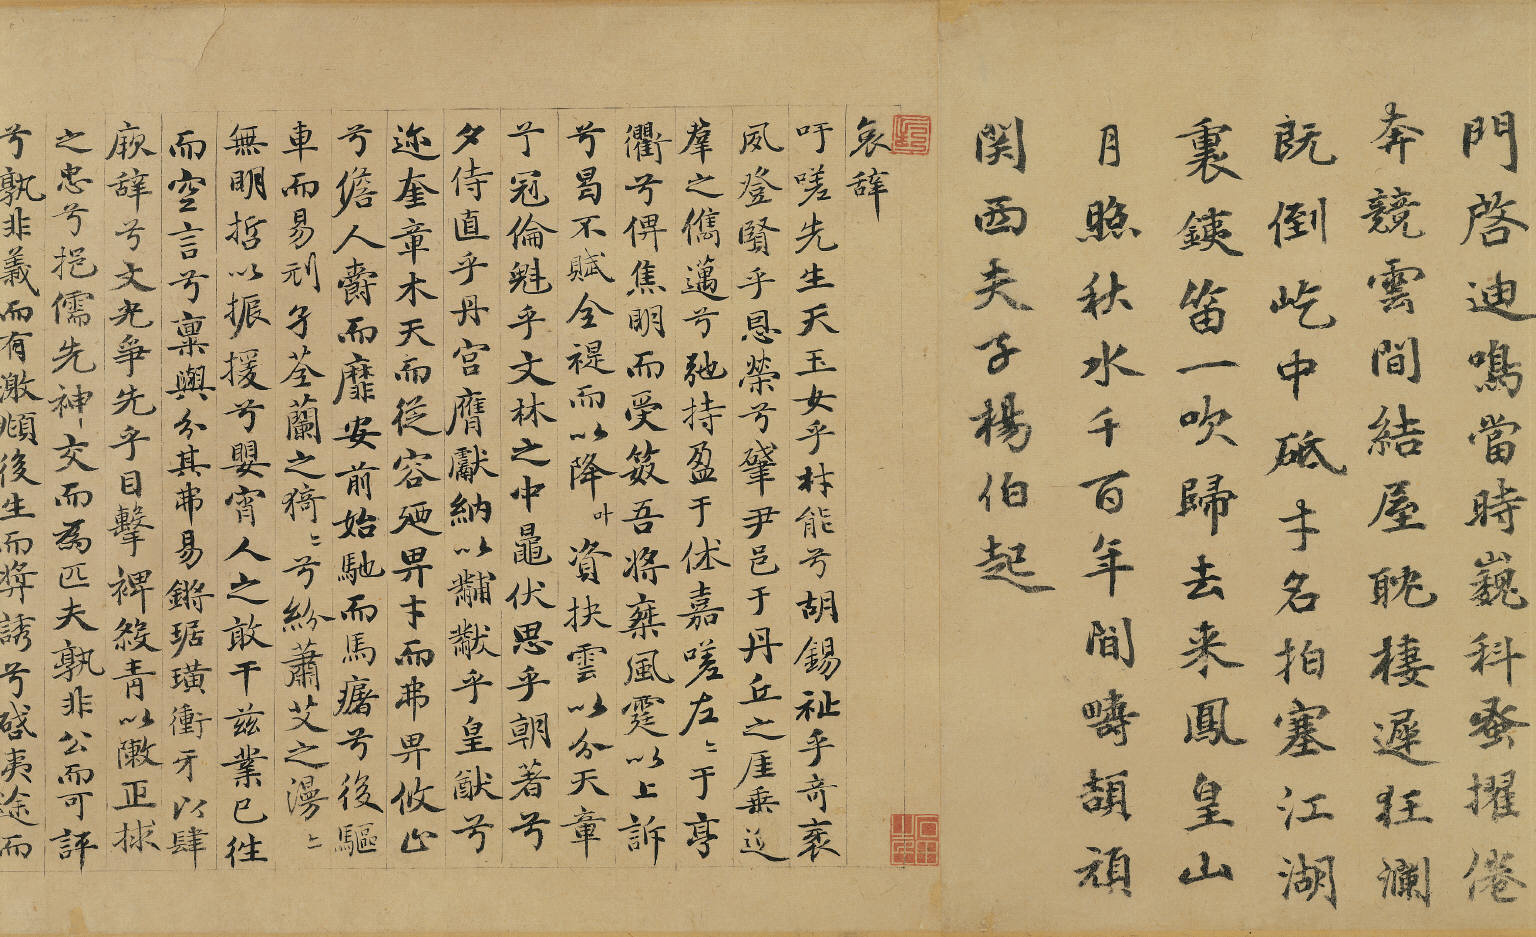 門啓迪鳴當時巍科蚤擢倦
奔競雲間結屋耽棲遲狂瀾
既倒屹中砥才名拍塞江湖
裏鐵笛一吹歸去来鳳皇山
月照秋水千百年間疇頡頏
関西夫子楊伯起
哀辞
吁嗟先生天玉女乎材能兮胡錫祉乎竒衺
夙登賢乎恩榮兮肇尹邑于丹丘之厓乗迨
羣之儁邁兮弛持盈于㑂嘉嗟左〻于亭
衢兮俾焦明而受笯吾將棄風霆以上訴
兮曷不賦全禔而以降叶資抉雲以分天章
兮冠倫魁乎文林之中黽伏思乎朝著兮
夕侍直乎丹宫膺獻納以黼黻乎皇猷兮
迩奎章木天而從容廼畀才而弗畀攸止
兮儋人爵而靡安前始馳而馬瘏兮後驅
車而易刓矛荃蘭之猗〻兮紛蕭艾之漫〻
無明哲以振援兮嬰宵人之敢干兹業已徃
而空言兮稟輿分其弗易鏘琚璜衝牙以肆
厥辞兮文先爭先乎目擊裨殺青以敶正捄
之忠兮挹儒先神交而為匹夫孰非公而可評
兮孰非義而有激頫後生而奨誘兮啓夷途而